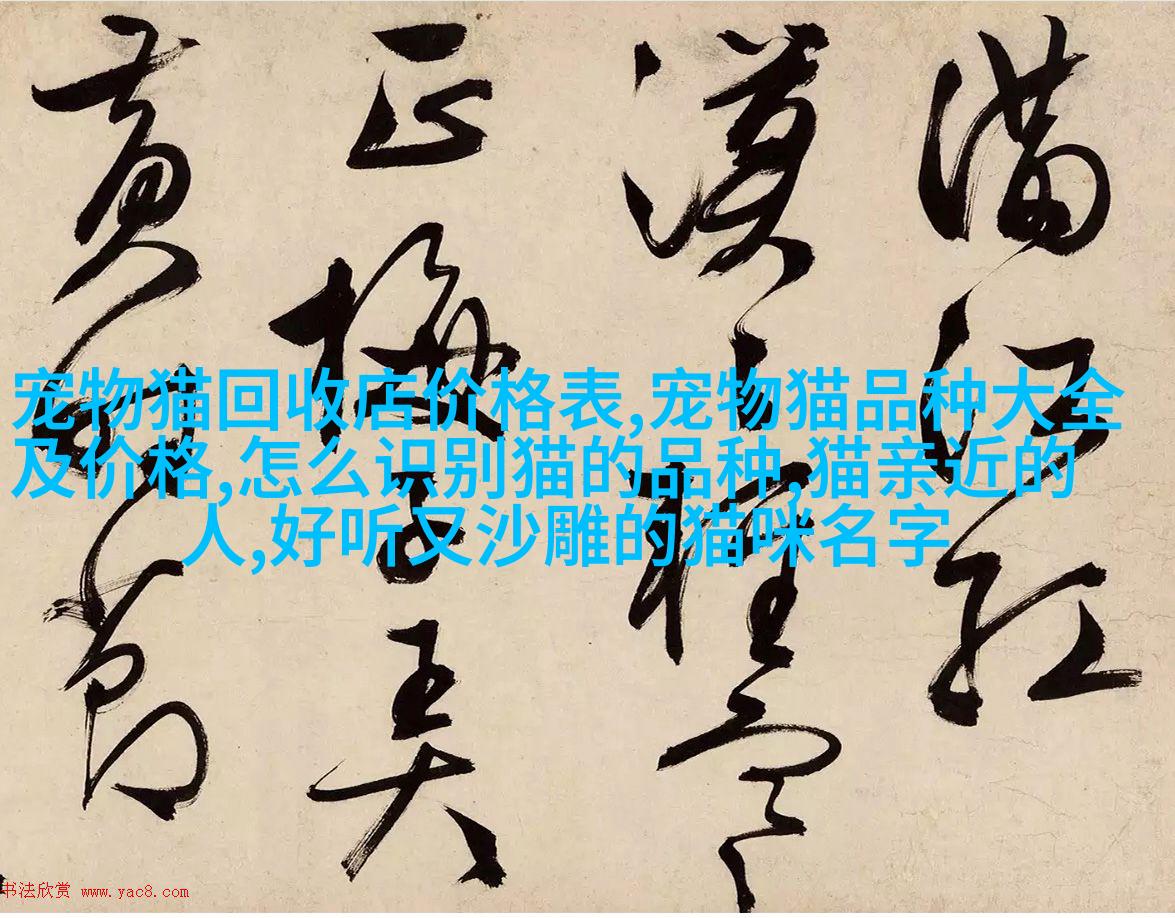 宠物猫回收店价格表,宠物猫品种大全
及价格,怎么识别猫的品种,猫亲近的
人,好听又沙雕的猫咪名字
滿江紅
漠漠輕陰
正梅子弄
黄時節
书法欣赏 www.yac8.com